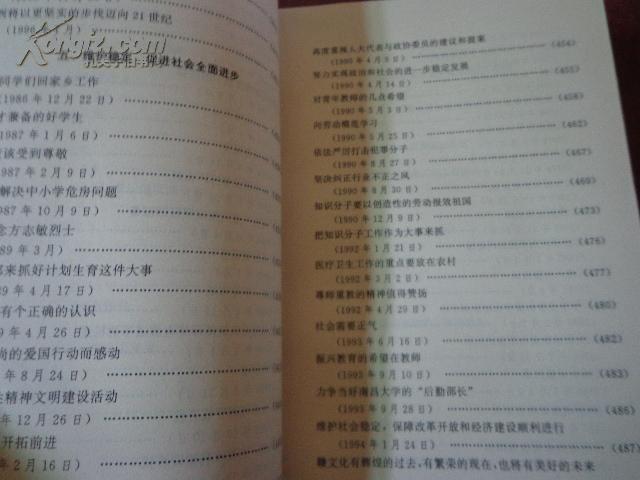 洲将以更坚实的步伐迈向 21 世纪
(1996 年
五 维护稳定 促进社会全面进步
同学们回家乡工作
(1986 年 12 月 22 日)
才兼备的好学生
987 年 1 月 6 日)
应该受到尊敬
987 年 2 月 9 日)
解决中小学危房问题
987 年 10 月 9 日)
念方志敏烈士
89 年 3 月)
来抓好计划生育这件大事
9 年 4 月 17 日)
有个正确的认识
年 4 月 26 日)
尚的爱国行动而感动
年 8 月 24 日)
精神文明建设活动
年 12 月 26 日)
开拓前进
年 2 月 16 日)
高度重视人大代表与政协委员的建议和提案
(1990 年 4 月 9 日) (454)
努力实现政治和社会的进一步稳定发展
(1990 年 4 月 日) (455)
对青年教师的几点希望
(1990 年 5 月 3 日) (458)
向劳动模范学习
(1990 年 5 月 25 日) (462)
依法严厉打击犯罪分子
(1990 年 8 月 27 日) (467)
坚决纠正行业不正之风
(1990 年 8 月 30 日) (469)
知识分子要以创造性的劳动报效祖国
(1990 年 12 月 9 日) (473)
把知识分子工作作为大事来抓
(1992 年 1 月 21 日) (476)
医疗卫生工作的重点要放在农村
(1992 年 3 月 2 日) (477)
尊师重教的精神值得赞扬
(1992 年 4 月 29 日) (480)
社会需要正气
(1993 年 6 月 16 日) (482)
振兴教育的希望在教师
(1993 年 9 月 10 日) (483)
力争当好南昌大学的“后勤部长”
(1993 年 9 月 28 日) (486)
维护社会稳定,保障改革开放和经济建设顺利进行
(1994 年 1 月 24 日) (487)
赣文化有辉煌的过去,有繁荣的现在,也将有美好的未来